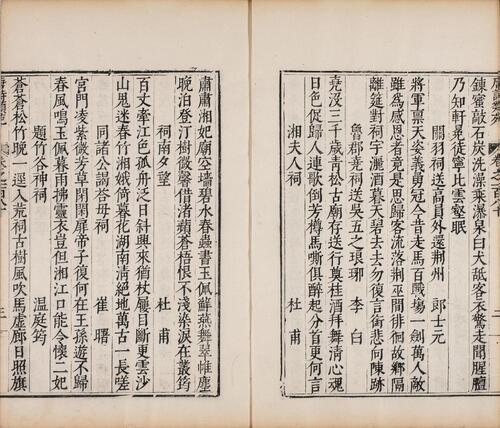 鍊蜜敲石炭洗澡乗瀑泉白犬舐客驚走聞腥羶
乃知軒冕徒寧比雲壑眠
關羽祠送高員外還荆州 郎士元
將軍禀天姿義勇冠今昔走馬百戰塲一劍萬人敵
雖為感恩者竟是思歸客流落荆巫間徘徊故鄉隔
離筵對祠宇灑酒暮天碧去去勿復言銜悲向陳跡
魯郡堯祠送吳五之琅琊 李白
堯沒三千歲青松古廟存送行奠桂酒拜舞清心魂
日色促歸人連歌倒芳樽馬嘶俱醉起分首更何言
湘夫人祠 杜甫
肅肅湘妃廟空墻碧水春蟲書玉佩蘚燕舞翠帷塵
晚泊登汀樹微馨借渚蘋蒼梧恨不淺染淚在叢筠
祠南夕望 杜甫
百丈牽江色孤舟泛日斜興來猶杖屨目斷更雲沙
山鬼迷春竹湘娥倚暮花湖南清絕地萬古一長嗟
同諸公謁啓母祠 崔曙
宮門凌紫微芳草閉閑扉帝子復何在王孫遊不歸
春風鳴玉佩暮雨拂靈衣豈但湘江口能令懷二妃
題竹谷神祠 温庭筠
蒼蒼松竹晚一逕入荒祠古樹風吹馬虛廊日照旗